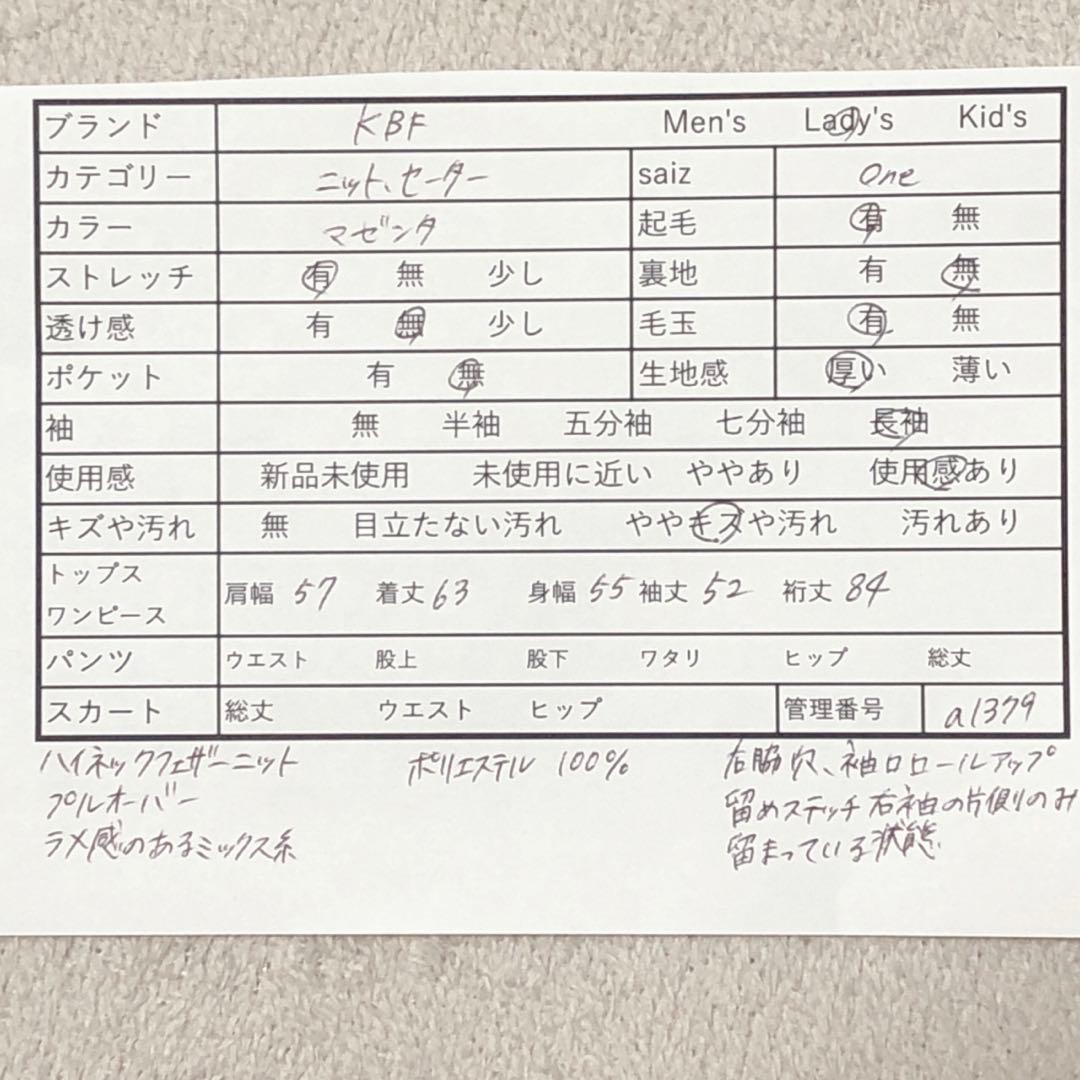 ブランド KBF Men's Lady's Kid's
カテゴリー ニット、セーター saiz One
カラー マゼンタ 起毛 有 無
ストレッチ 有 無 少し 裏地 有 無
透け感 有 無 少し 毛玉 有 無
ポケット 有 無 生地感 厚い 薄い
袖 無 半袖 五分袖 七分袖 長袖
使用感 新品未使用 未使用に近い ややあり 使用感あり
キズや汚れ 無 目立たない汚れ ややキズや汚れ 汚れあり
トップス
ワンピース 肩幅 57 着丈 63 身幅 55 袖丈 52 裄丈 84
パンツ ウエスト 股上 股下 ワタリ ヒップ 総丈
スカート 総丈 ウエスト ヒップ 管理番号 a1379
ハイネックフェザーニット
プルオーバー
ラメ感のあるミックス糸
ポリエステル 100%
右脇穴、袖口ロールアップ
留めステッチ右袖の片側のみ
留まっている状態